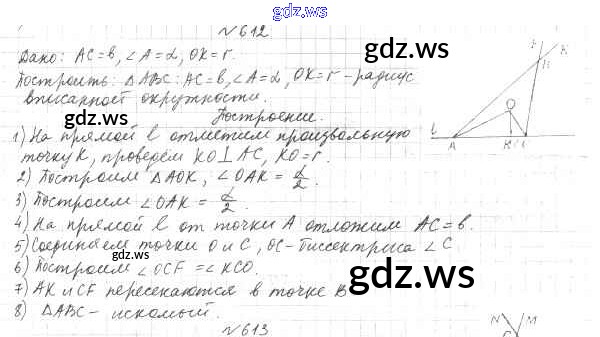 gdz.ws
№612
Дано: AC=в, ∠A=α, OK=r.
gdz.ws
Построить: ΔABC: AC=в, ∠A=α, OK=r - радиус
вписанной окружности.
gdz.ws
Построение.
1) На прямой l отметим произвольную
точку K, проведём KO⊥AC, KO=r.
2) Построим ΔAOK, ∠OAK = α/2.
3) Построим ∠OAK = α/2.
gdz.ws
4) На прямой l от точки A отложим AC=в.
5) Соединяем точки O и C, OC-биссектриса ∠C.
6) Построим ∠OCF=∠KCO.
gdz.ws
7) AK и CF пересекаются в точке B
8) ΔABC - искомый.
gdz.ws
№613
l A K C O B F K
N M